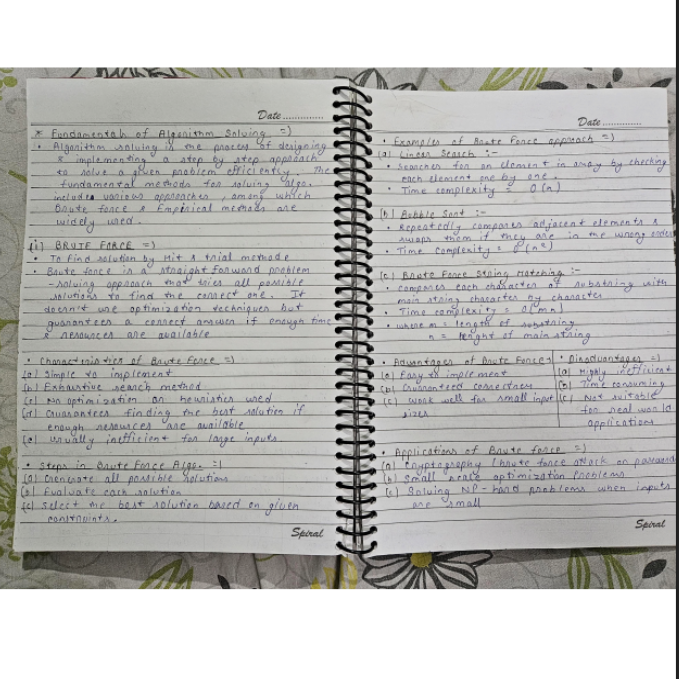 Date ..............
* Fundamentals of Algorithm Solving =)
• Algorithm solving is the process of designing
& implementing a step by step approach
to solve a given problem efficiently. The
fundamental methods for solving algo.
includes various approaches, among which
Brute force & Empirical methods are
widely used.
(i) BRUTE FORCE =)
• To find solution by Hit & trial methode
• Brute force is a straight forward problem
-solving approach that tries all possible
solutions to find the correct one. It
doesn't use optimization techniques but
guarantees a correct answer if enough time
& resources are available
• Characteristics of Brute Force =)
(a) Simple to implement
(b) Exhaustive search method
(c) No optimization or heuristics used
(d) Guarantees finding the best solution if
enough resources are available
(e) usually inefficient for large inputs.
• Steps in Brute Force Algo. =)
(a) Generate all possible solutions
(b) Evaluate each solution
(c) Select the best solution based on given
constraints.
Spiral
Date ..............
• Examples of Brute Force approach =)
(a) Linear Search :-
• Searches for an element in array by checking
each element one by one.
• Time complexity = O(n)
(b) Bubble Sort :-
• Repeatedly compares adjacent elements &
swaps them if they are in the wrong order
• Time complexity = O(n²)
(c) Brute Force String Matching :-
• compares each character of substring with
main string character by character
• Time complexity = O(mn)
• where m = length of substring
n = lenght of main string
• Advantages of Brute Force =) • Disadvantages =)
(a) Easy to implement (a) Highly inefficient
(b) Guaranteed correctness (b) Time consuming
(c) work well for small input (c) Not suitable
sizes for real world
applications
• Applications of Brute force =)
(a) Cryptography (brute force attack on password
(b) Small scale optimization Problems
(c) Solving NP-hard problems when inputs
are small
Spiral